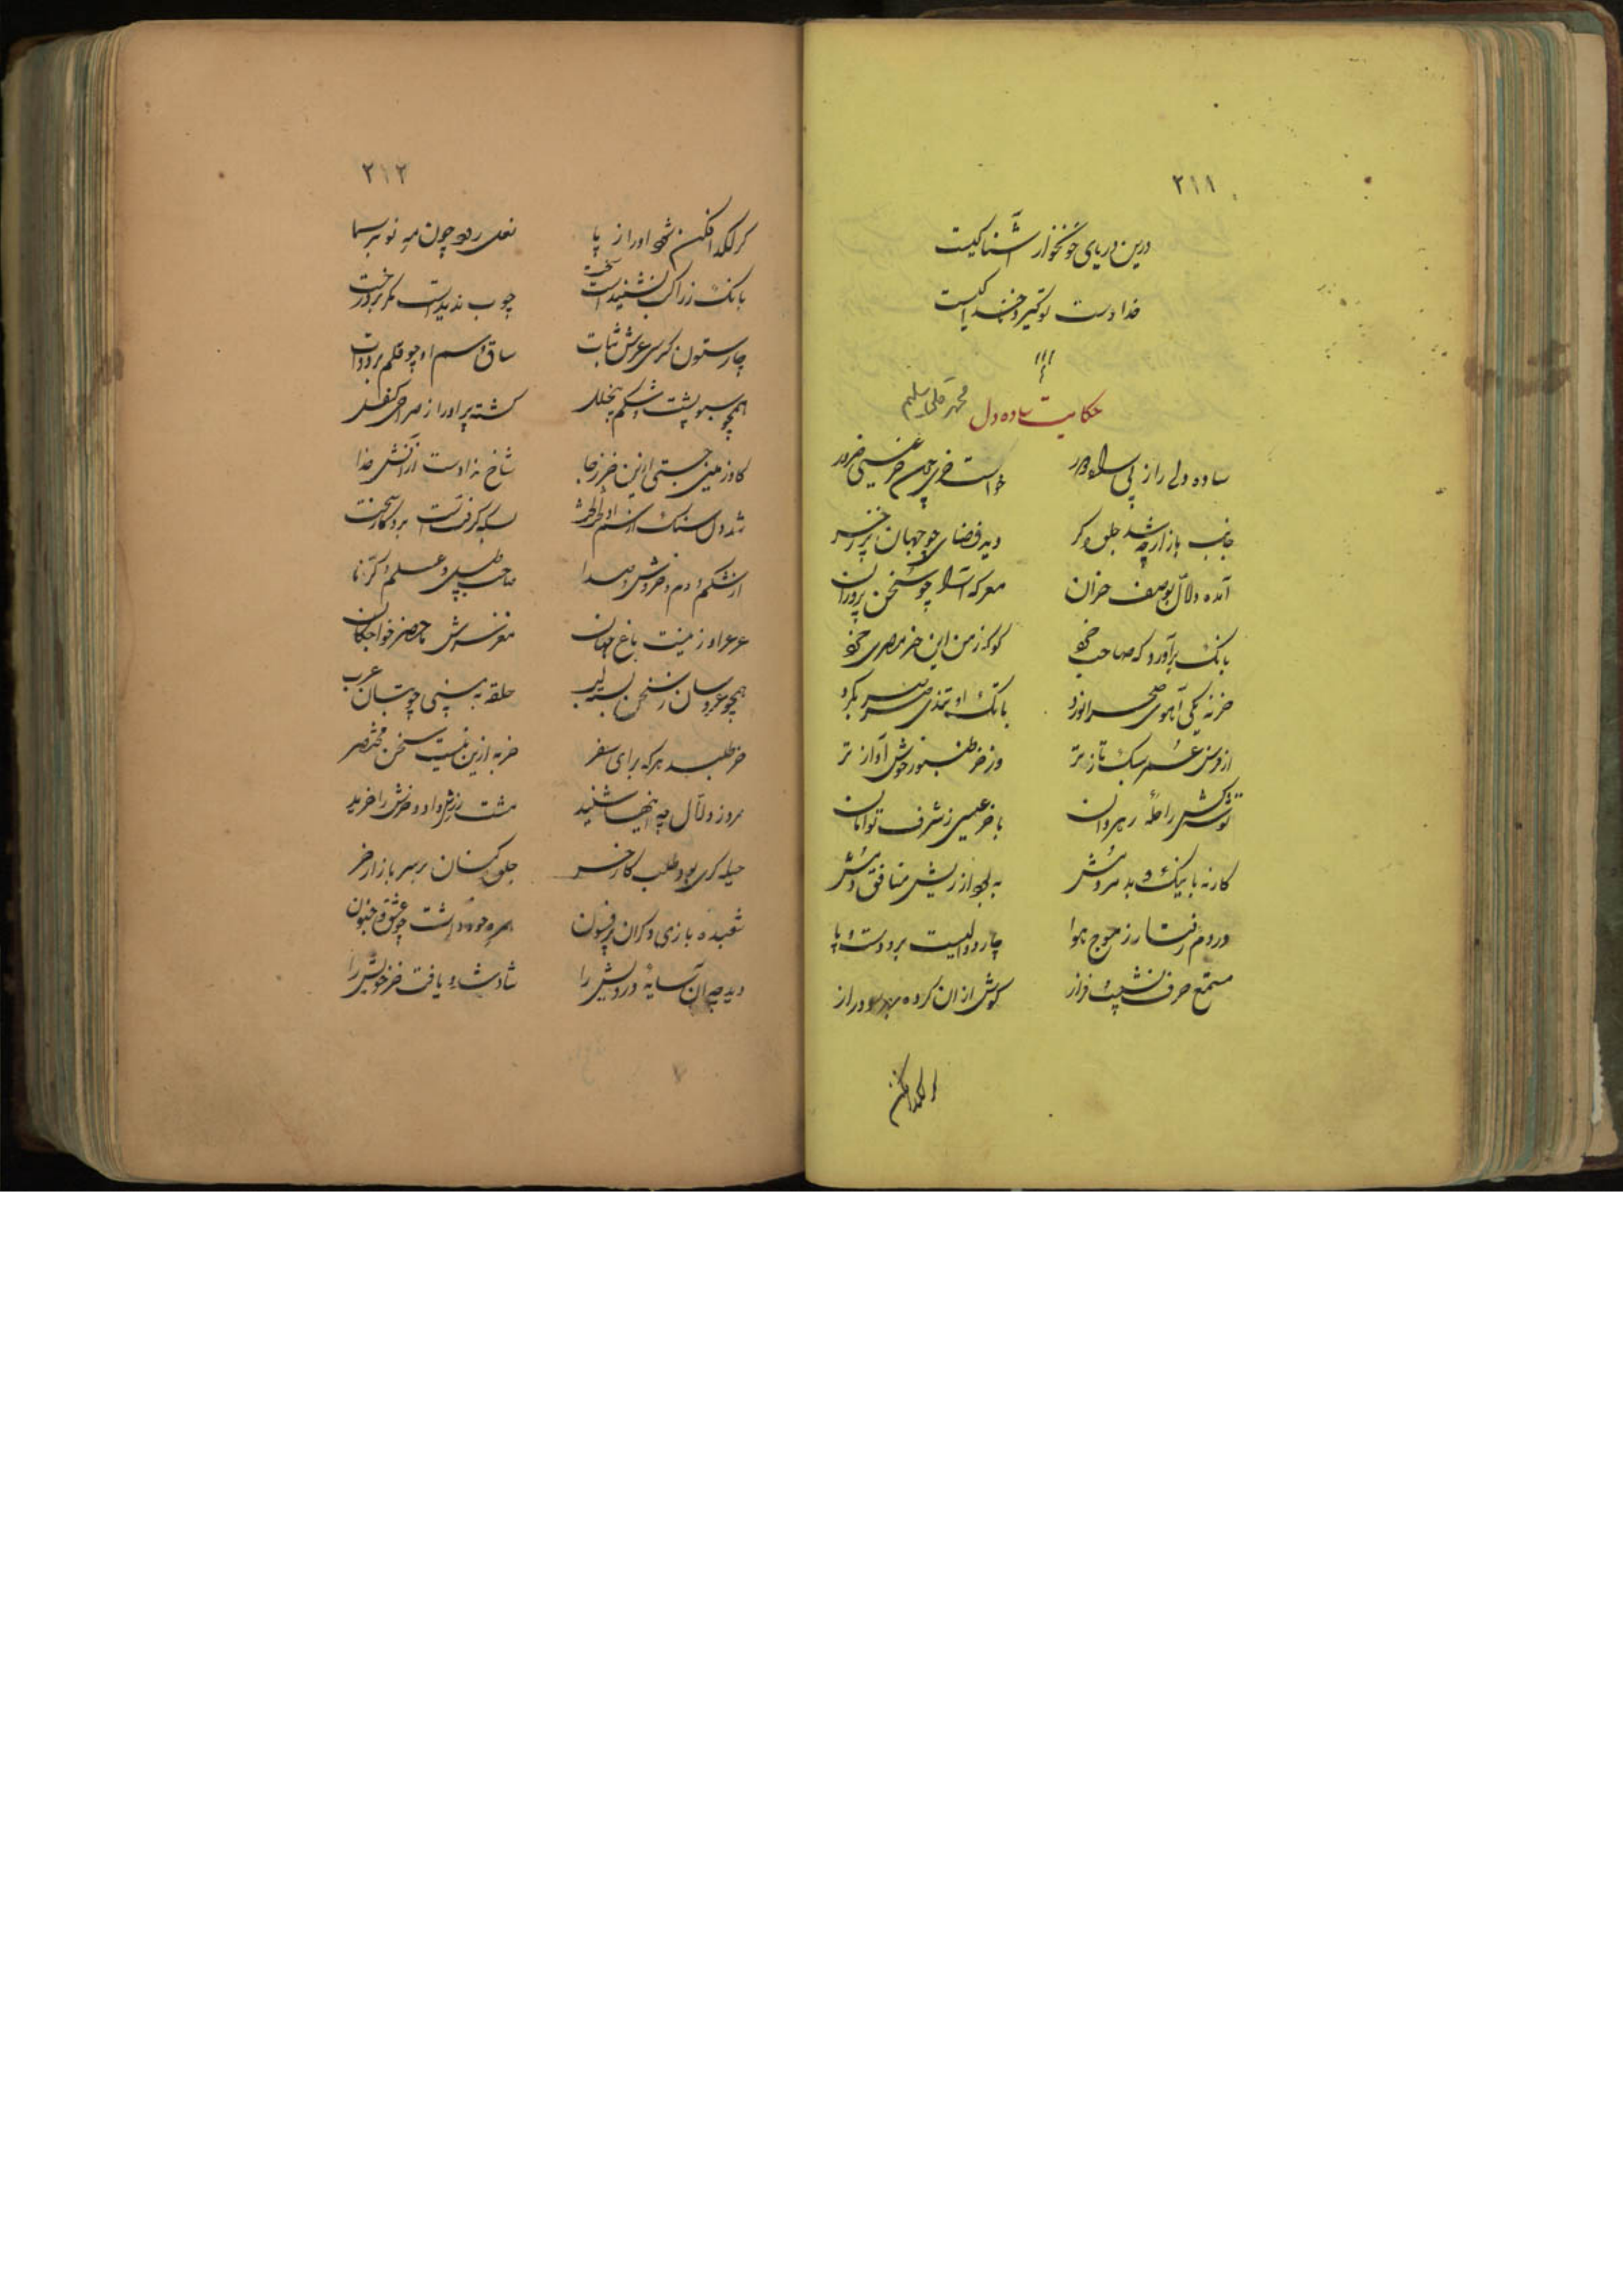 ۲۱۱
درین دریای خونخوار آشنا کیست
خدا دست تو گیرد جز خدا کیست
حکایت ساده دل محمد قلی سلیم
ساده دلی را ز پی راه دور خواست خری چون خر عیسی ضرور
جانب بازار چه شد جلوه گر دید فضای چو جهان پر ز خر
آمده دلال بوصف خران معرکه آرا چو سخن پروران
بانگ برآورد که صاحب خرد کو که ز من این خر مصری خرد
خر نه یکی آهوی صحرا نورد با تک او تندی صرصر بگرد
از فرس عمر سبک تازتر وز خر طنبور خوش آوازتر
توشه کش راحلهٔ رهروان با خر عیسی ز شرف توامان
کار نه با نیک و بد مردمش به بود از ریش منافق دمش
در دم رفتار ز موج هوا چار دوالیست برو دست و پا
مستمع حرف نشیب و فراز گوش ازان کرده بهر سو دراز
گر لگد افکن
۲۱۲
گر لگد افکن شود او را ز پا نعل رود چون مه نو بر سما
بانگ ز راکب نشنیدست سخت چوب ندیدست مگر بر درخت
چار ستون کرسی عرش ثبات ساق و سم او چو قلم بر دوات
همچو سبو پشت و شکم بی خلل گشته پر او را ز صراحی کفل
گاو زمین جستی ازین خر ز جا شاخ ندادست ازانش خدا
شد دل سنگ از سم او لخت لخت بسکه گرفتست برو کار سخت
از شکم و دم و خروش و صدا صاحب طبل و علم و کرنا
عرعر او زینت باغ جهان مغز سرش ماحضر خواجگان
همچو عروسان ز سخن بسته لب حلقه به بینی چو بتان عرب
خر طلبد هر که برای سفر خر به ازین نیست سخن مختصر
مرد ز دلال چو اینها شنید مشت زرش داد و خرش را خرید
حیله گری بود طلب کار خر جلوه کنان بر سر بازار خر
شعبده بازی دگران پر فسون همره خود داشت چو عشق و جنون
دید چو آن سایهٔ درویش را شاد شد و یافت خر خویش را